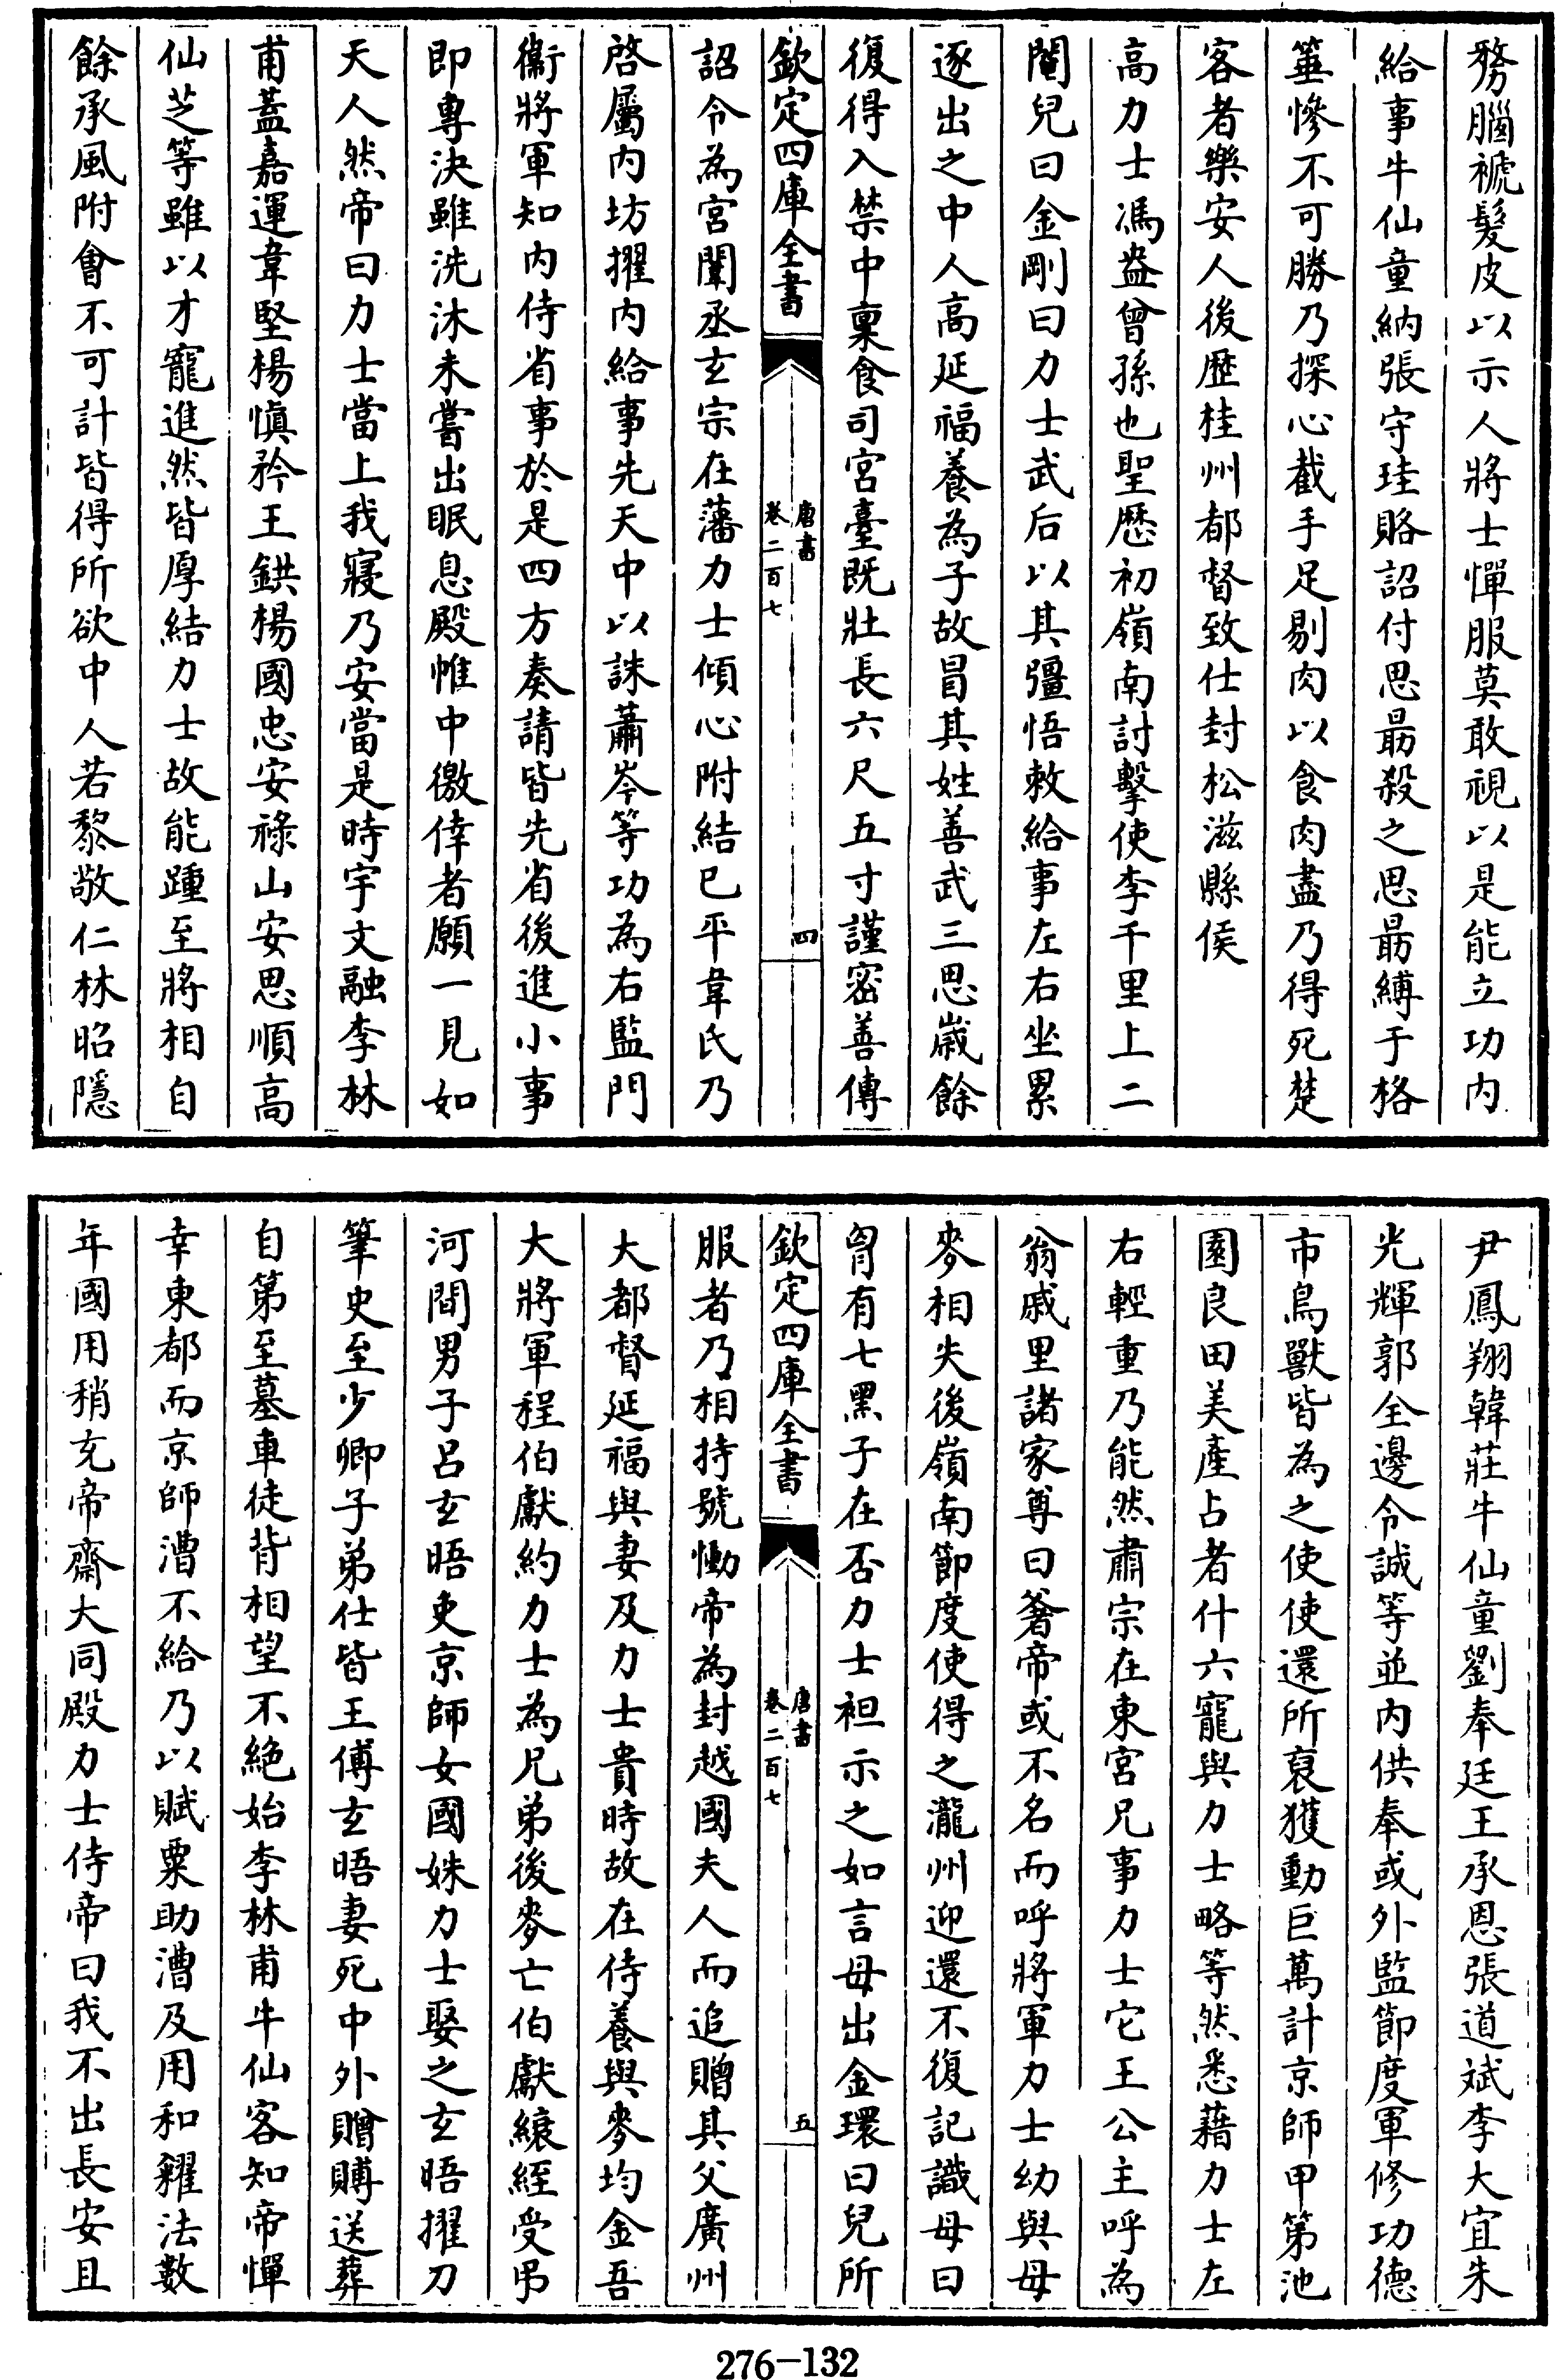 務腦褫髮皮以示人將士憚服莫敢視以是能立功内
給事牛仙童納張守珪賂詔付思勗殺之思勗縛于格
箠慘不可勝乃探心截手足剔肉以食肉盡乃得死楚
客者樂安人後歷桂州都督致仕封松滋縣侯
高力士馮盎曾孫也聖歷初嶺南討擊使李千里上二
閹兒曰金剛曰力士武后以其彊悟敕給事左右坐累
逐出之中人高延福養為子故冒其姓善武三思歲餘
復得入禁中稟食司宮臺既壯長六尺五寸謹密善傳
欽定四庫全書
唐書
卷二百七
四
詔令為宮闈丞玄宗在藩力士傾心附結已平韋氏乃
啓屬内坊擢内給事先天中以誅蕭岑等功為右監門
衞將軍知内侍省事於是四方奏請皆先省後進小事
即專決雖洗沐未嘗出眠息殿帷中徼倖者願一見如
天人然帝曰力士當上我寢乃安當是時宇文融李林
甫蓋嘉運韋堅楊愼矜王鉷楊國忠安祿山安思順高
仙芝等雖以才寵進然皆厚結力士故能踵至將相自
餘承風附會不可計皆得所欲中人若黎敬仁林昭隱
尹鳳翔韓莊牛仙童劉奉廷王承恩張道斌李大宜朱
光輝郭全邊令誠等並内供奉或外監節度軍修功德
市鳥獸皆為之使使還所裒獲動巨萬計京師甲第池
園良田美產占者什六寵與力士略等然悉藉力士左
右輕重乃能然肅宗在東宮兄事力士它王公主呼為
翁戚里諸家尊曰爹帝或不名而呼將軍力士幼與母
麥相失後嶺南節度使得之瀧州迎還不復記識母曰
胷有七黑子在否力士袒示之如言母出金環曰兒所
欽定四庫全書
唐書
卷二百七
五
服者乃相持號慟帝為封越國夫人而追贈其父廣州
大都督延福與妻及力士貴時故在侍養與麥均金吾
大將軍程伯獻約力士為兄弟後麥亡伯獻縗絰受弔
河間男子呂玄晤吏京師女國姝力士娶之玄晤擢刀
筆史至少卿子弟仕皆王傅玄晤妻死中外贈賻送葬
自第至墓車徒背相望不絶始李林甫牛仙客知帝憚
幸東都而京師漕不給乃以賦粟助漕及用和糴法數
年國用稍充帝齋大同殿力士侍帝曰我不出長安且
276-132